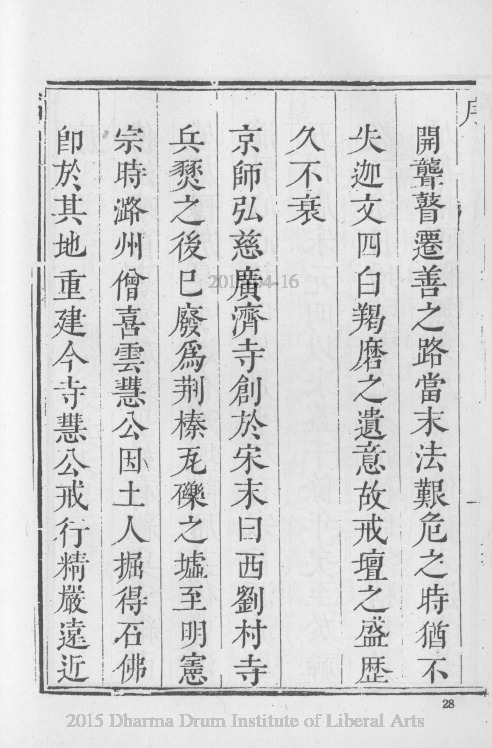 序
開聾瞽遷善之路當末法艱危之時猶不
失迦文四白羯磨之遺意故戒壇之盛歷
久不衰
京師弘慈廣濟寺創於宋末曰西劉村寺
兵燹之後已廢爲荆榛瓦礫之墟至明憲
宗時潞州僧喜雲慧公因土人掘得石佛
卽於其地重建今寺慧公戒行精嚴遠近
一
28
2015-04-16
2015 Dharma Drum Institute of Liberal Arts